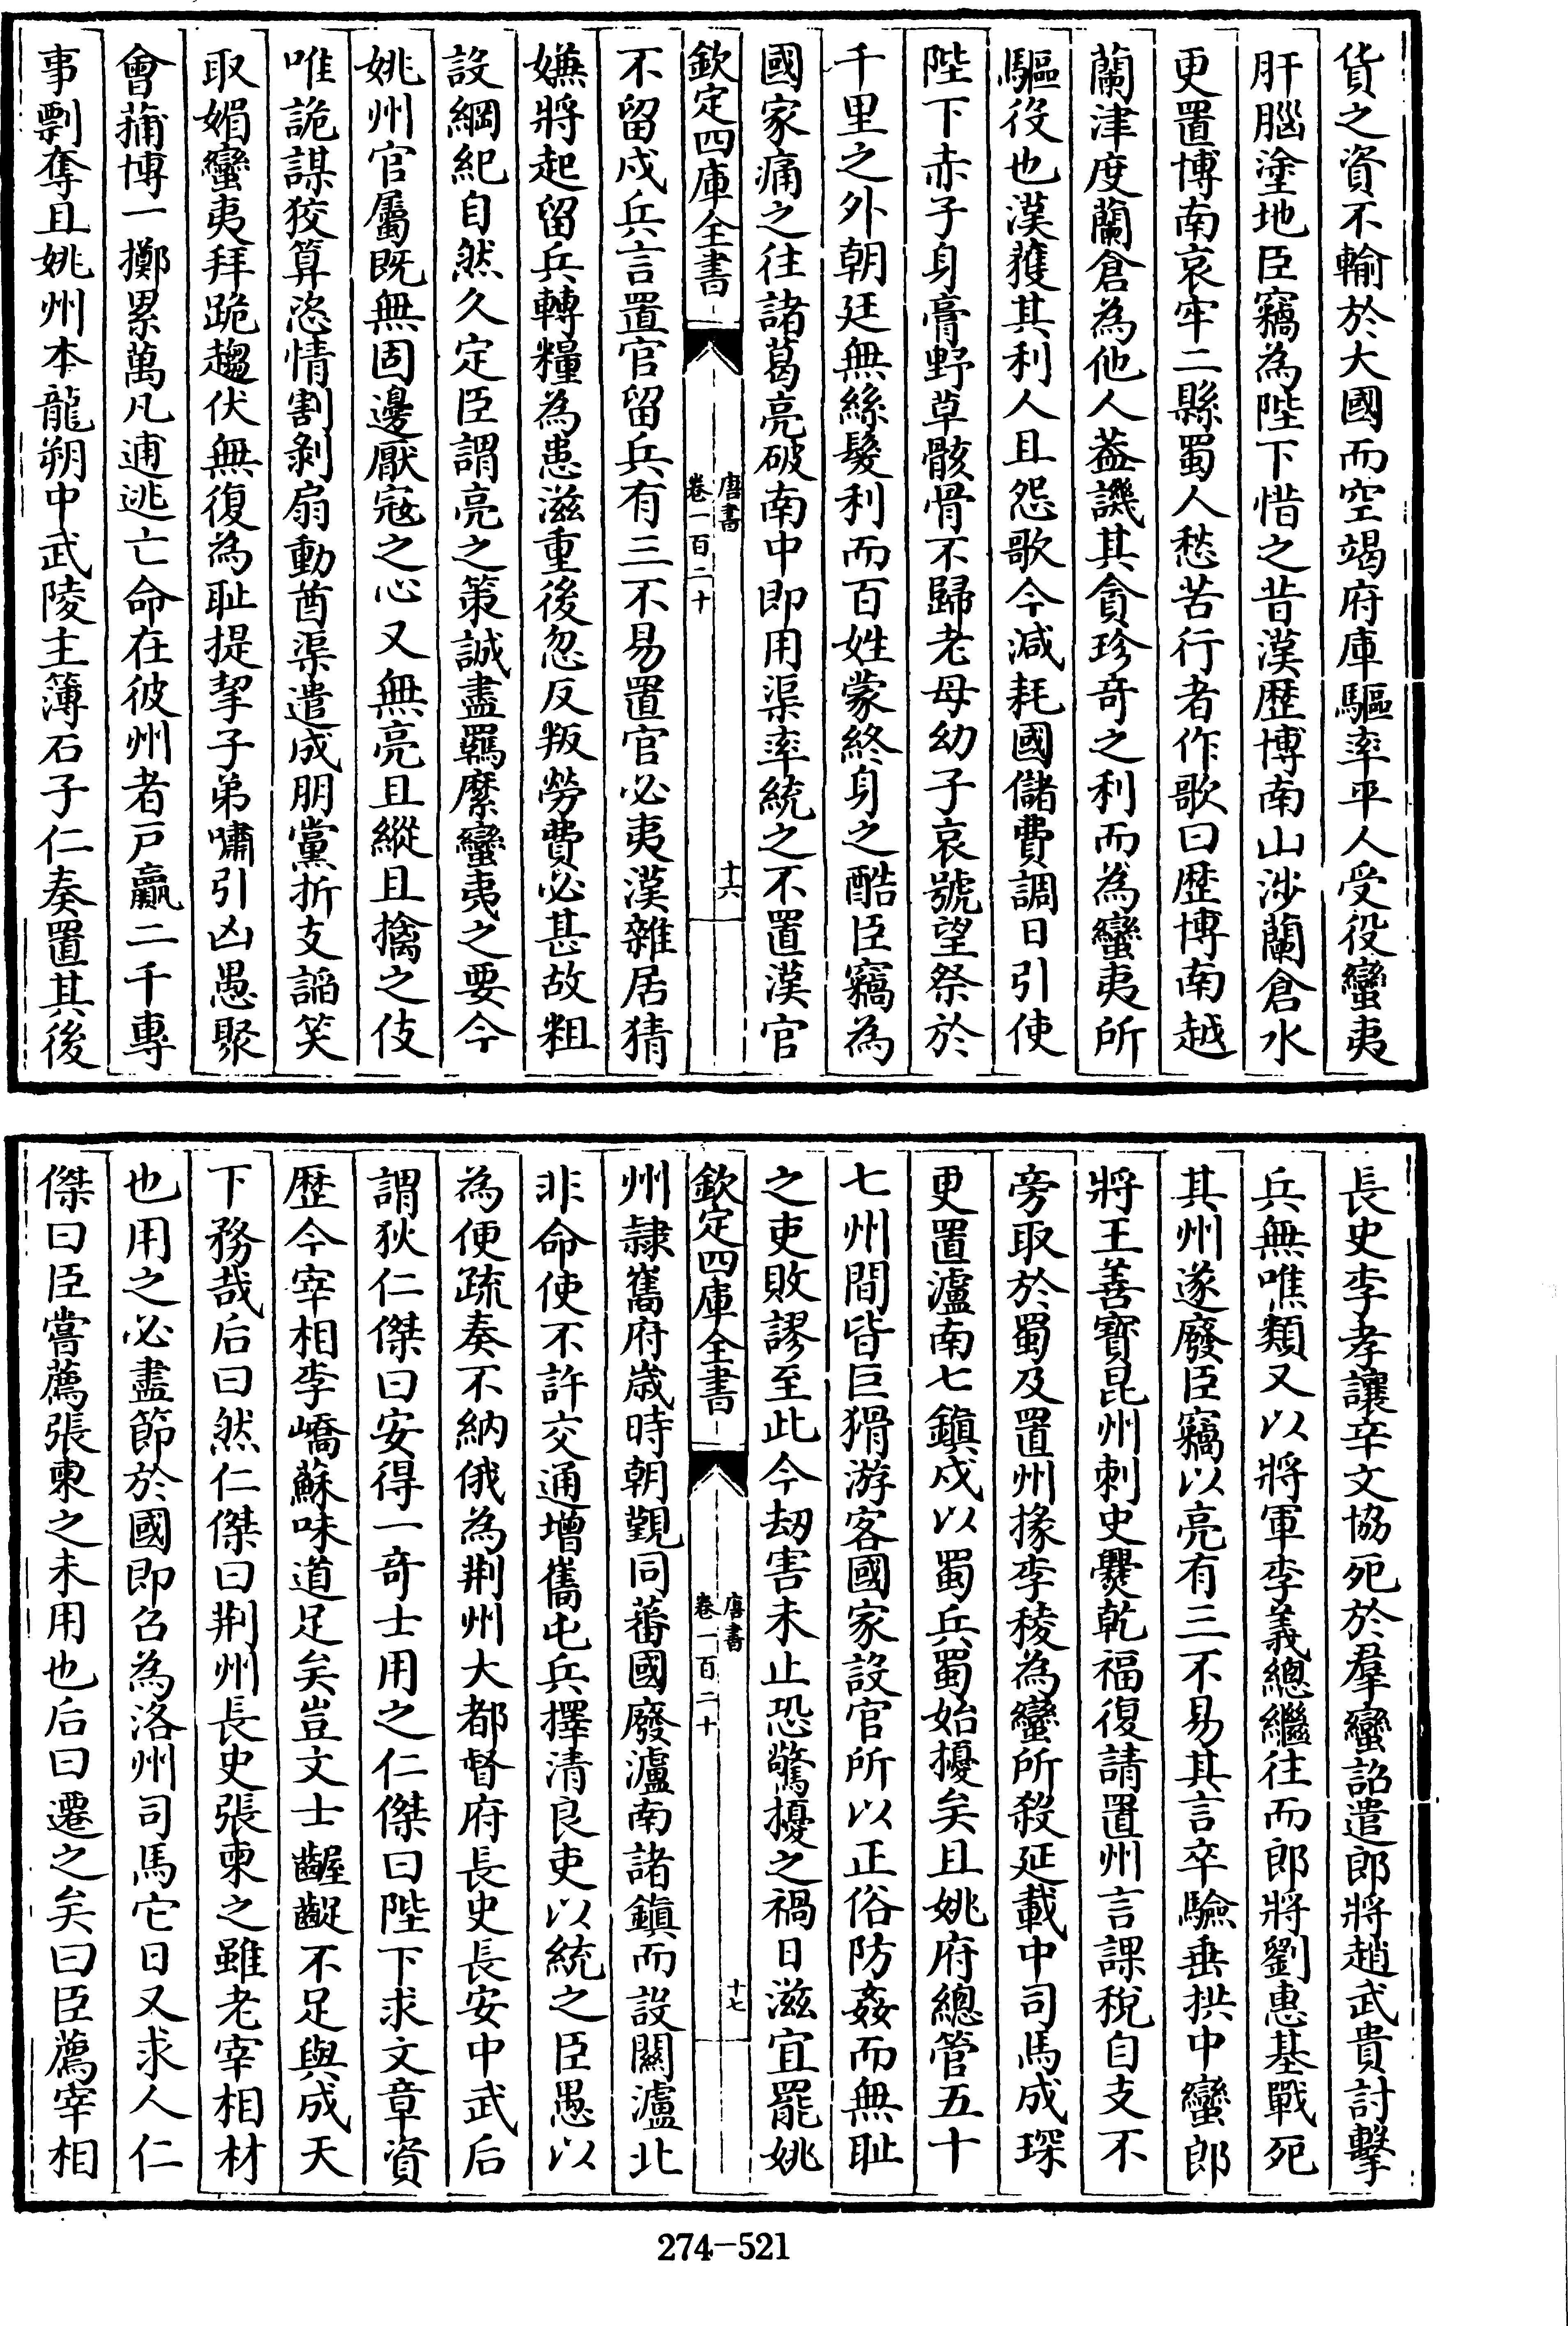 貨之資不輸於大國而空竭府庫驅率平人受役蠻夷
肝腦塗地臣竊為陛下惜之昔漢歴博南山涉蘭倉水
更置博南哀牢二縣蜀人愁苦行者作歌曰歴博南越
蘭津度蘭倉為他人葢譏其貪珍奇之利而為蠻夷所
驅役也漢獲其利人且怨歌今減耗國儲費調日引使
陛下赤子身膏野草骸骨不歸老母幼子哀號望祭於
千里之外朝廷無絲髮利而百姓蒙終身之酷臣竊為
國家痛之往諸葛亮破南中即用渠率統之不置漢官
欽定四庫全書
唐書
卷一百二十
十六
不留戍兵言置官留兵有三不易置官必夷漢雜居猜
嫌將起留兵轉糧為患滋重後忽反叛勞費必甚故粗
設綱紀自然久定臣謂亮之策誠盡羈縻蠻夷之要今
姚州官屬既無固邊厭寇之心又無亮且縱且擒之伎
唯詭謀狡算恣情割剝扇動酋渠遣成朋黨折支諂笑
取媚蠻夷拜跪趨伏無復為恥提挈子弟嘯引凶愚聚
會蒱博一擲累萬凡逋逃亡命在彼州者戸贏二千專
事剽奪且姚州本龍朔中武陵主簿石子仁奏置其後
長史李孝讓辛文協死於羣蠻詔遣郎將趙武貴討擊
兵無噍類又以將軍李義總繼往而郎將劉惠基戰死
其州遂廢臣竊以亮有三不易其言卒驗垂拱中蠻郎
將王善寶昆州刺史爨乾福復請置州言課稅自支不
旁取於蜀及置州掾李稜為蠻所殺延載中司馬成琛
更置瀘南七鎮戍以蜀兵蜀始擾矣且姚府總管五十
七州間皆巨猾游客國家設官所以正俗防姦而無恥
之吏敗謬至此今劫害未止恐驚擾之禍日滋宜罷姚
欽定四庫全書
唐書
卷一百二十
十七
州隷雟府歳時朝覲同蕃國廢瀘南諸鎮而設關瀘北
非命使不許交通增雟屯兵擇清良吏以統之臣愚以
為便疏奏不納俄為荆州大都督府長史長安中武后
謂狄仁傑曰安得一奇士用之仁傑曰陛下求文章資
歴今宰相李嶠蘇味道足矣豈文士齷齪不足與成天
下務哉后曰然仁傑曰荆州長史張柬之雖老宰相材
也用之必盡節於國即召為洛州司馬它日又求人仁
傑曰臣嘗薦張柬之未用也后曰遷之矣曰臣薦宰相
274-521